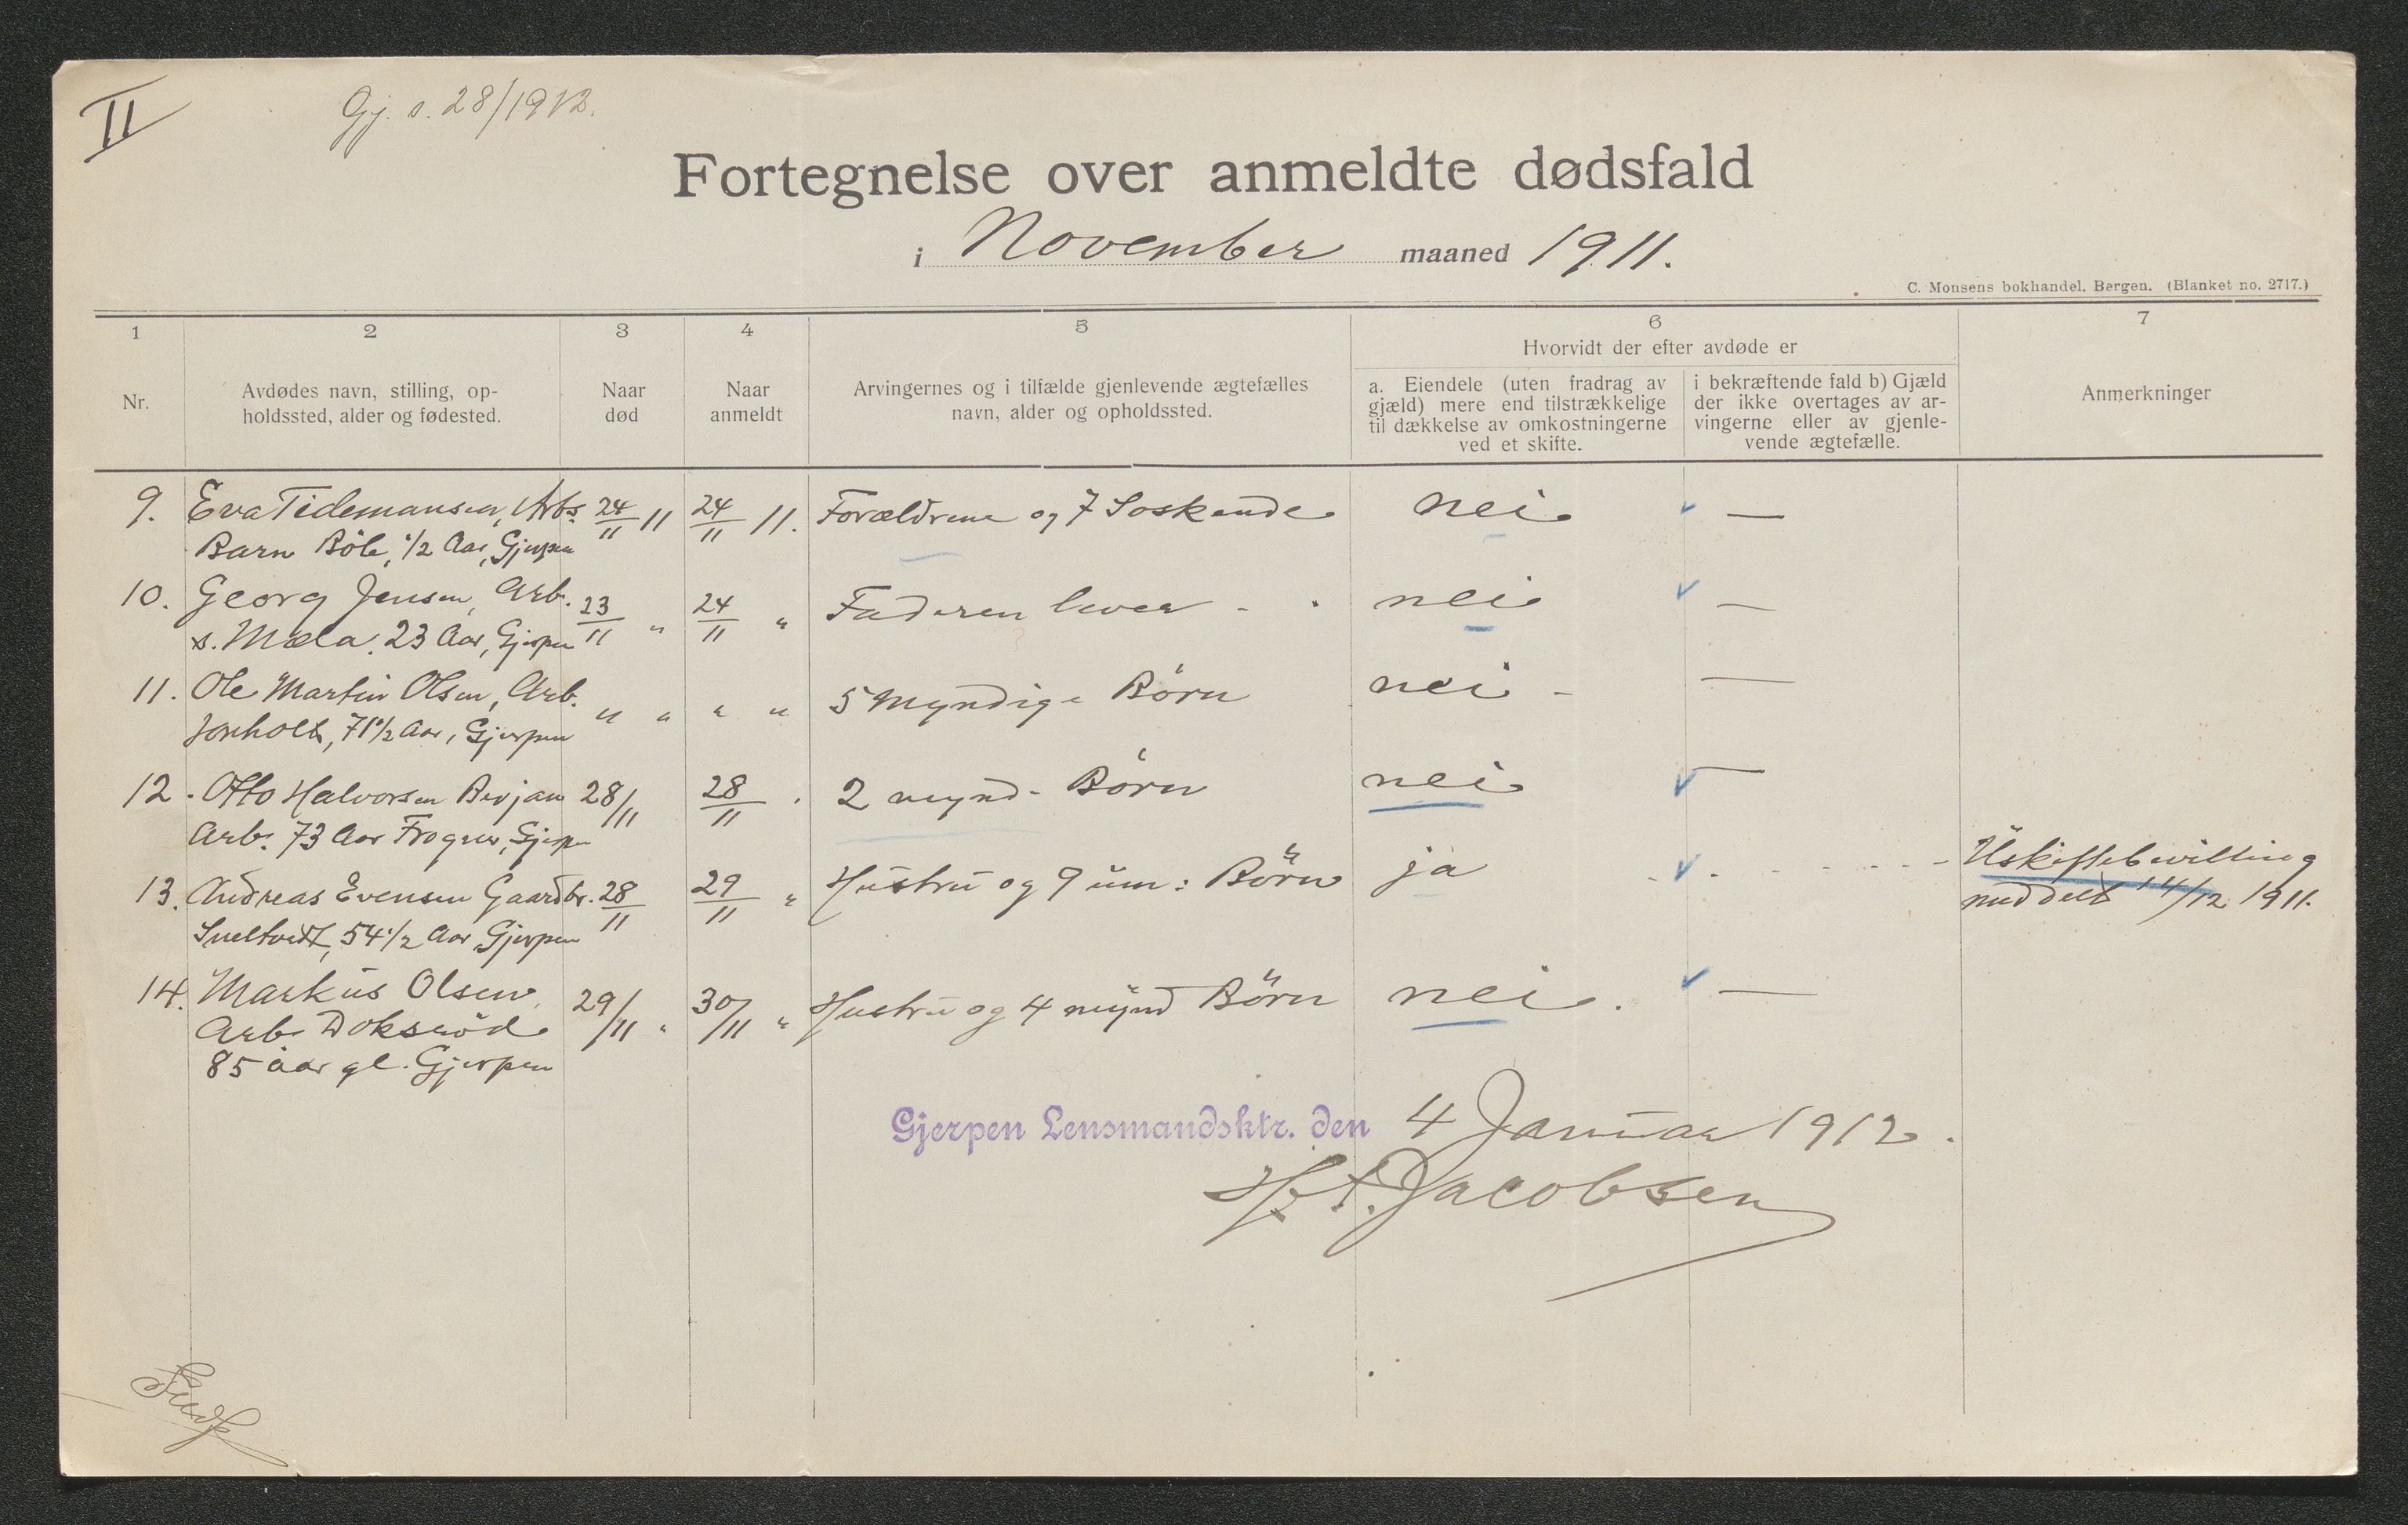 II
Gj. s. 28/1912.
Fortegnelse over anmeldte dødsfald
i November maaned 1911.
C. Monsens bokhandel. Bergen. (Blanket no. 2717.)
1 2 3 4 5 6 7
Nr.
Avdødes navn, stilling, op-
holdssted, alder og fødested.
Naar
død
Naar
anmeldt
Arvingernes og i tilfælde gjenlevende ægtefælles
navn, alder og opholdssted.
Hvorvidt der efter avdøde er
a. Eiendele (uten fradrag av
gjæld) mere end tilstrækkelige
til dækkelse av omkostningerne
ved et skifte.
i bekræftende fald b) Gjæld
der ikke overtages av ar-
vingerne eller av gjenle-
vende ægtefælle.
Anmerkninger
9. Eva Tidemansen, Arbs. 24/11 11 24/11 11. Forældrene og 7 Søskende nei —
Barn Böle, 1/2 Aar, Gjerpen
10. Georg Jensen, Arb. 23/11 " 24/11 " Faderen lever - nei —
s. Mæla. 23 Aar, Gjerpen
11. Ole Martin Olsen, Arb. " " " " 5 myndige Børn nei - —
71 1/2 Aar, Gjerpen
12. Otto Halvorsen 28/11 28/11 . 2 mynd. Børn nei —
Arb. 73 Aar Frogner, Gjerpen
13. Andreas Evensen Gaardbr. 28/11 29/11 " Hustru og 9 um: Børn ja Uskiftebevilling
Sneltvedt, 54 1/2 Aar Gjerpen meddelt 14/12 1911.
14. Markus Olsen 29/11 " 30/11 " Hustru og 4 mynd Børn nei. —
Arb. Doksröd
85 aar gl. Gjerpen
Gjerpen Lensmandsktr. den 4 Januar 1912.
Jacobsen